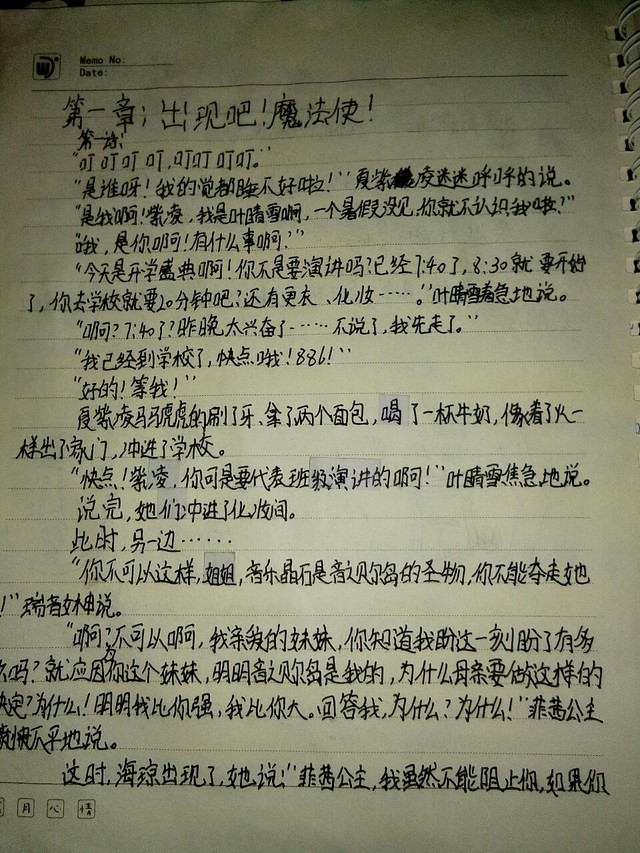 Memo No:
Date:
第一章：出现吧！魔法使！
第一话：
“叮叮叮叮，叮叮叮叮。”
“是谁呀！我的觉都睡不好啦！”夏紫凌迷迷呼呼的说。
“是我啊！紫凌，我是叶晴雪啊，一个暑假没见，你就不认识我啦？”
“哦，是你啊！有什么事啊？”
“今天是开学盛典啊！你不是要演讲吗？已经7:40了，8:30就要开始
了，你去学校就要20分钟吧？还有更衣、化妆……。”叶晴雪着急地说。
“啊？7:40了？昨晚太兴奋了……不说了，我先走了。”
“我已经到学校了，快点哦！886！”
“好的！等我！”
夏紫凌马马虎虎的刷了牙、拿了两个面包，喝了一杯牛奶，像着了火一
样出了家门，冲进了学校。
“快点！紫凌，你可是要代表班级演讲的啊！”叶晴雪焦急地说。
说完，她们冲进了化妆间。
此时，另一边……
“你不可以这样，姐姐，音乐晶石是音之贝尔岛的圣物，你不能夺走她
！”瑞奇女神说。
“啊？不可以啊，我亲爱的妹妹，你知道我盼这一刻盼了有多
久吗？就应因为你这个妹妹，明明音之贝尔岛是我的，为什么母亲要做这样的
决定？为什么！明明我比你强，我比你大。回答我，为什么？为什么！”菲茜公主
愤愤不平地说。
这时，海琼出现了，她说：“菲茜公主，我虽然不能阻止你，如果你
月 心 情